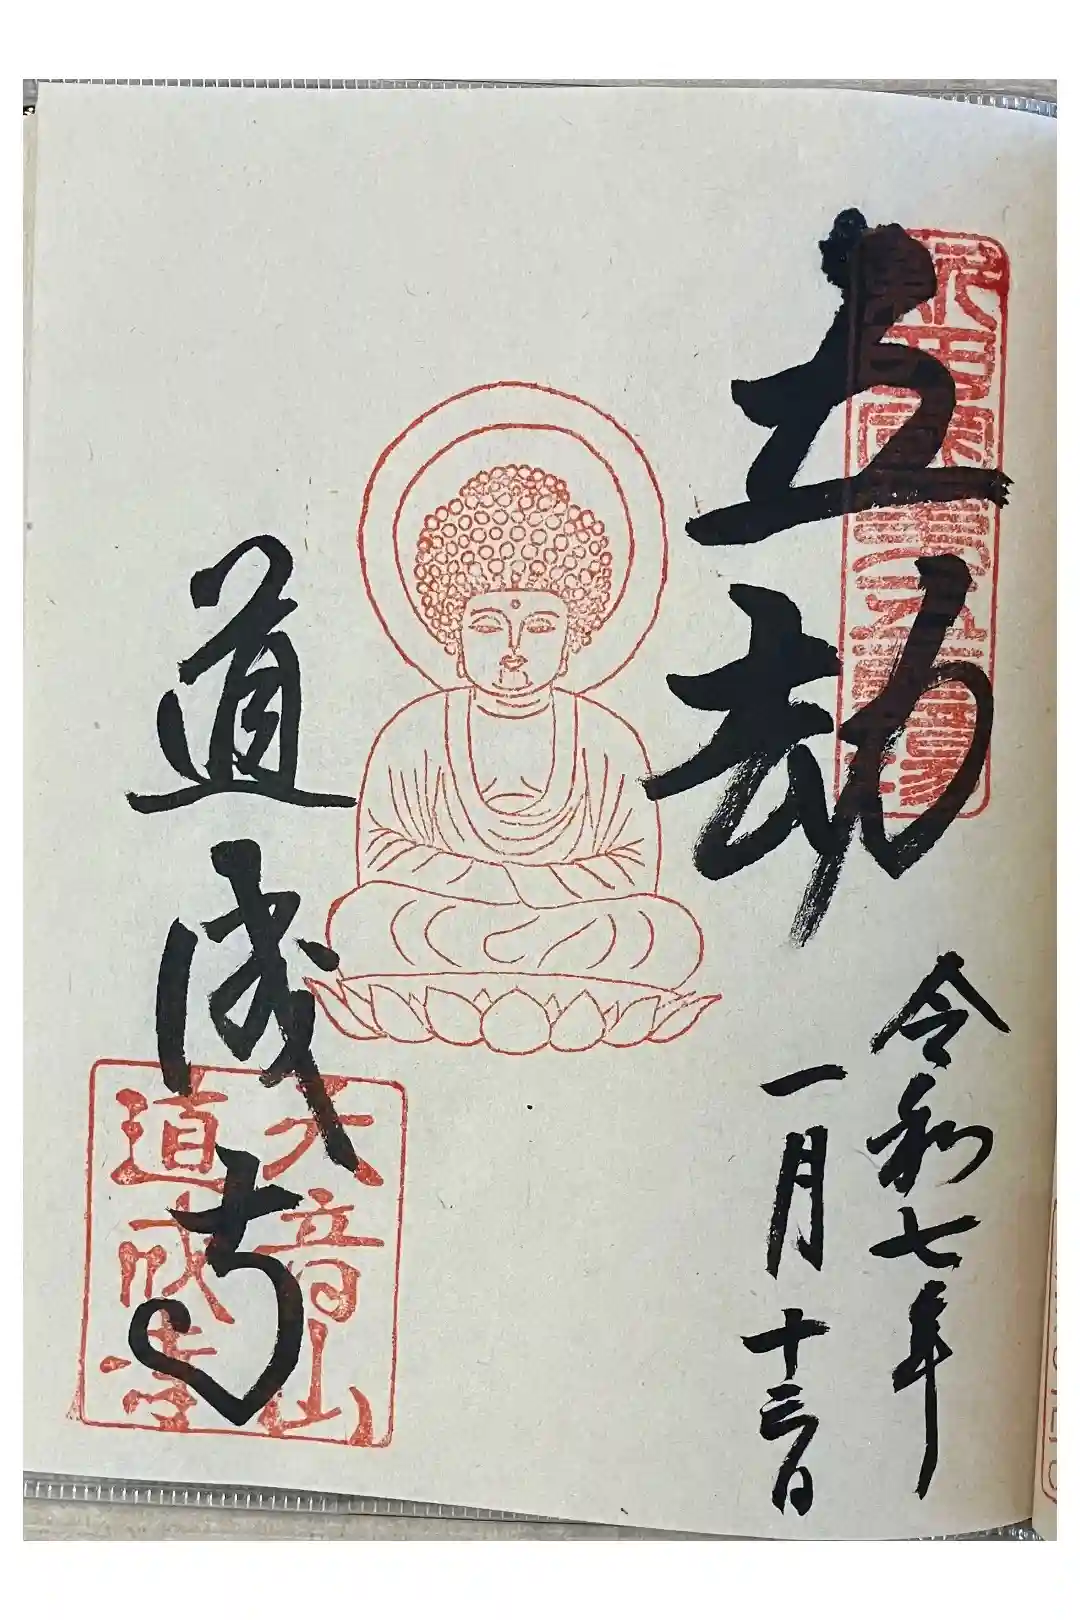 五劫
令和七年
一月十三日
道成寺
天音山
道成寺